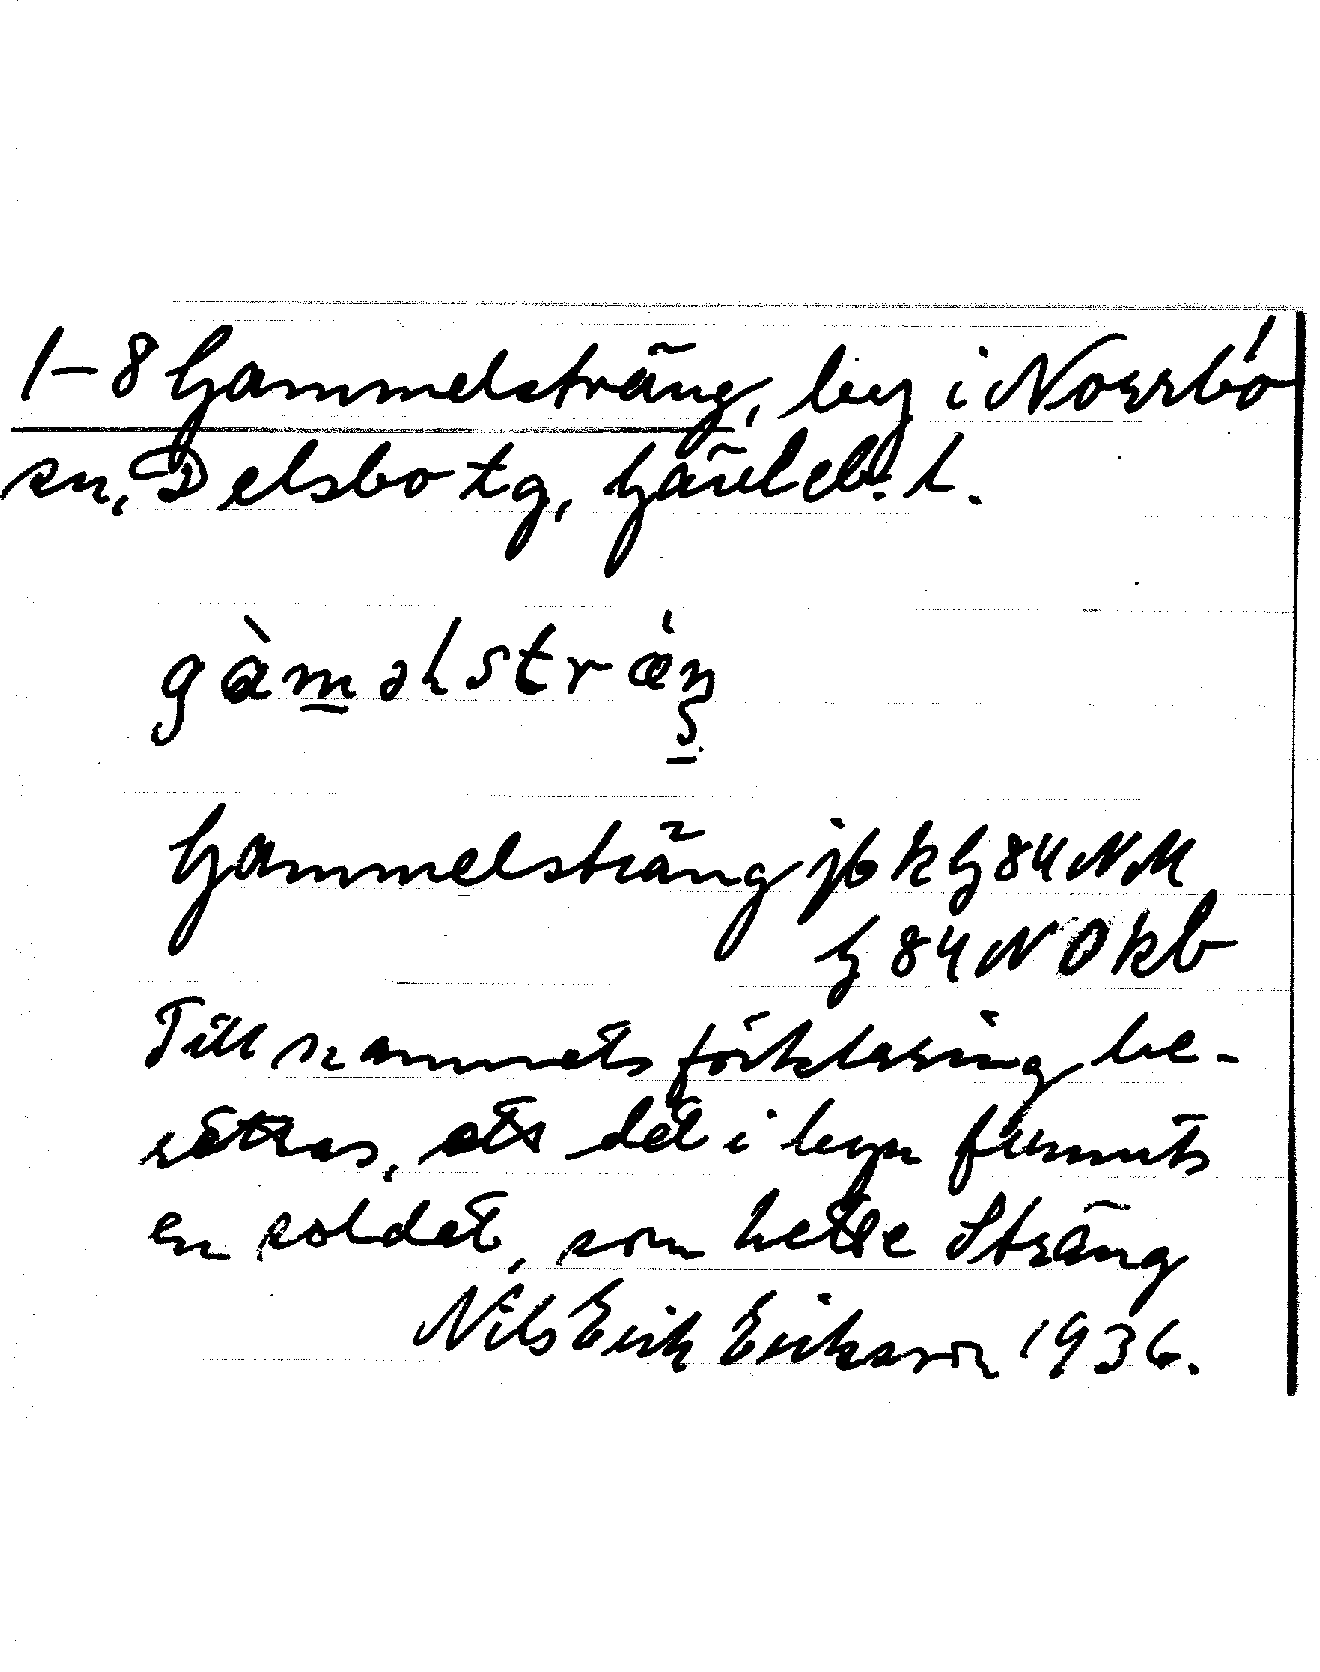 1-8 Gammelsträng, by i Norrbo
sn, Delsbo tg, Gävleb. l.
gàməlstræ̀ŋ
Gammelsträng jb k G 84 NM
G 84 NO kb
Till namnets förklaring be-
rättas, att det i byn funnits
en soldat, som hette Sträng
Nils Erik Eriksson 1936.